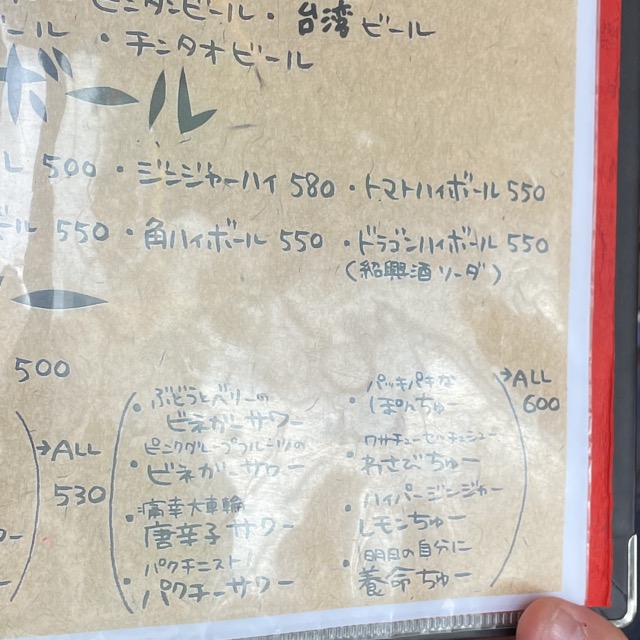 ピンタンビール・台湾ビール
ール ・チンタオビール
ボール
ル 500 ・ジンジャーハイ 580 ・トマトハイボール 550
ール 550 ・角ハイボール 550 ・ドラゴンハイボール 550
(紹興酒ソーダ)
ワー
500
→ALL
530
・ぶどうとベリーの
ビネガーサワー
・ピンクグレープフルーツの
ビネガーサワー
・唐辛子サワー
パクチニスト
・パクチーサワー
パッキパキな
・ぽんちゅー
ワサチューセッチュシュー
・わさびちゅー
ハイパージンジャー
・レモンちゅー
明日の自分に
・養命ちゅー
→ALL
600